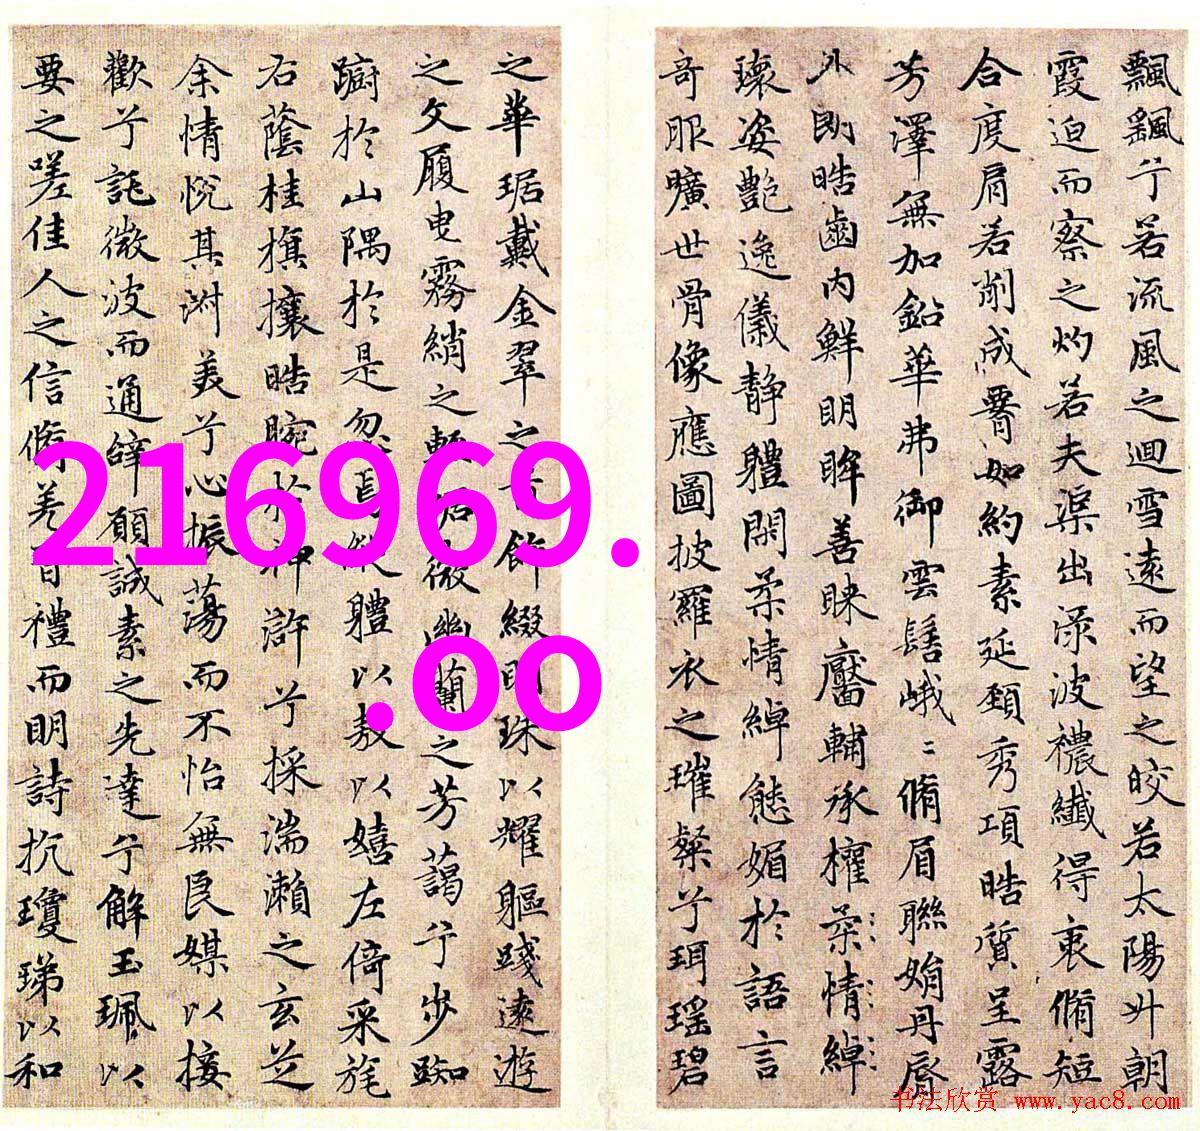 飄飖兮若流風之迴雪遠而望之皎若太陽升朝
霞迫而察之灼若夫渠出渌波襛纖得衷脩短
合度肩若削成䙅如約素延頸秀項皓質呈露
芳澤無加鉛華弗御雲髻峨〻脩眉聯娟丹脣
外朗皓齒内鮮明眸善睞靨輔承權柔情綽
瓌姿艷逸儀静體閑柔情綽態媚於語言
奇服曠世骨像應圖披羅衣之璀粲兮珥瑶碧
之華琚戴金翠之首飾綴明珠以耀軀踐遠遊
之文履曳霧綃之輕裾微幽蘭之芳藹兮步踟
蹰於山隅於是忽焉縱體以敖以嬉左倚采旄
右蔭桂旗攘皓腕於神滸兮採湍瀨之玄芝
余情悅其淑美兮心振蕩而不怡無良媒以接
歡兮託微波而通辭願誠素之先達兮解玉珮以
要之嗟佳人之信脩羌習禮而明詩抗瓊珶以和
216969.
.oo
书法欣赏 www.yac8.com